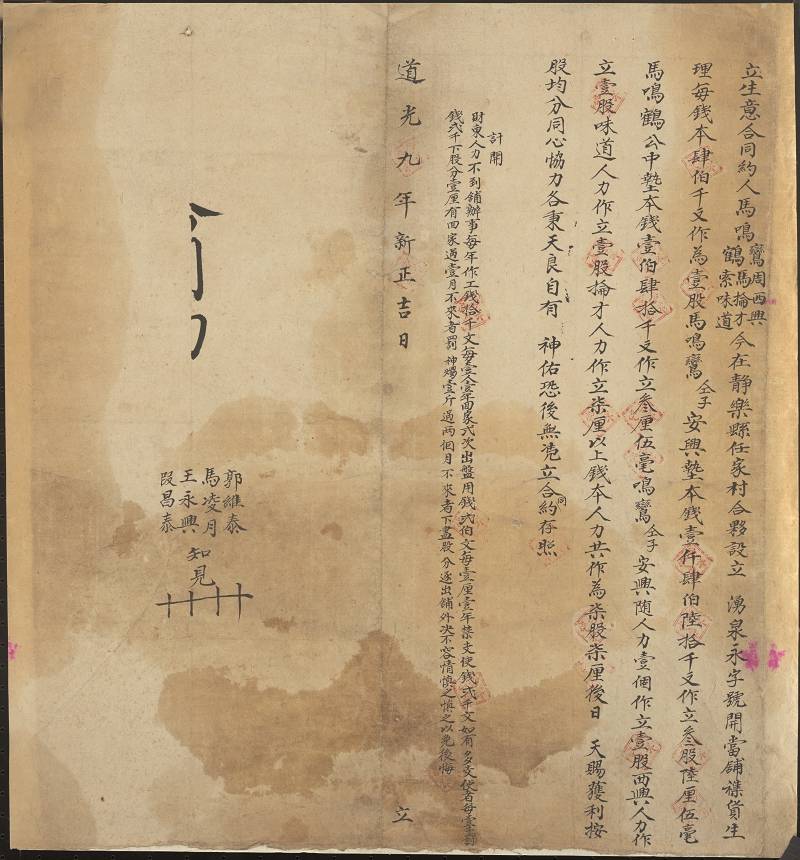 立生意合同約人馬鳴鸞鶴周西興馬掄才索味道今在靜樂縣任家村合夥設立 湧泉永字號開當舖襍貨生
理每錢本肆伯千文作為壹股馬鳴鸞仝子安興墊本錢壹仟肆伯陸拾千文作立叁股陸厘伍毫
馬鳴鶴公中墊本錢壹伯肆拾千文作立叁厘伍毫鳴鸞仝子安興隨人力壹個作立壹股西興人力作
立壹股味道人力作立壹股掄才人力作立柒厘以上錢本人力共作為柒股柒厘後日 天賜獲利按
股均分同心恊力各秉天良自有 神佑恐後無凭立合同約存照
計開
財東人力不到舖辦事每年作工錢拾千文每壹人壹年回家弍次出盤用錢弍伯文每壹厘壹年禁支使錢弍千文如有多支使者每壹千罰
錢弍千下股分壹厘有回家過壹月不來者罰 神燭壹斤過兩個月不來者下盡股分逐出舖外决不容情慎之慎之以免後悔
道光九年新正吉日 立
郭維泰
馬凌月
王永興
段昌泰
知見